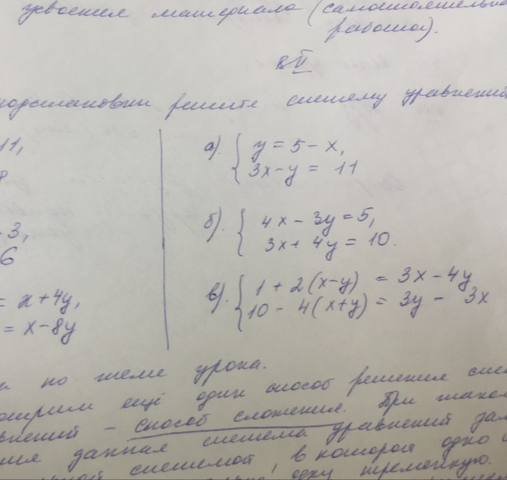 усвоения материала (самостоятельная
работа).
подстановки решите систему уравнений
11,
а). { y = 5 - x,
3x - y = 11
б). { 4x - 3y = 5,
3x + 4y = 10.
3,
6
= x + 4y,
= x - 8y
в). { 1 + 2(x-y) = 3x - 4y
10 - 4(x+y) = 3y - 3x
по теме урока.
ещё один способ решения
- способ сложения. При
данная система уравнений
системой, в которой одно
одну переменную.